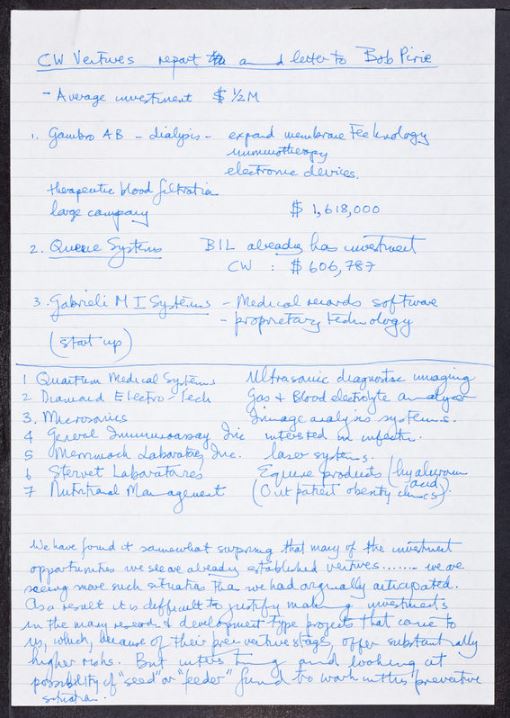 CW Ventures report to a and letter to Bob Pirie
- Average investment $ ½M
1. Gambro AB - dialysis - expand membrane technology
immunotherapy
electronic devices.
therapeutic blood filtration
large company $ 1,618,000
2. Queue Systems BIL already has investment
CW : $ 606,787
3. Gabrieli M I Systems - Medical records software
- proprietary technology
(start up)
1 Quantum Medical Systems Ultrasonic diagnostic imaging
2 Diamond Electro-Tech Gas & Blood electrolyte analyser
3. Microsonics Image analysis systems.
4 General Immunoassay Inc interested in infectn.
5 Merrimack Laboratories, Inc. laser systems.
6 Stervet Laboratories Equine products (hyaluronic acid)
7 Nutritional Management (Out patient obesity clinics).
We have found it somewhat surprising that many of the investment
opportunities we see are already established ventures....... we are
seeing more such situations than we had originally anticipated.
As a result it is difficult to justify making investments
in the many research & development type projects that come to
us, which, because of their pre-venture stages, offer substantially
higher risks. But and looking at
possibility of "seed" or "feeder" fund to work in this "preventure
situation.